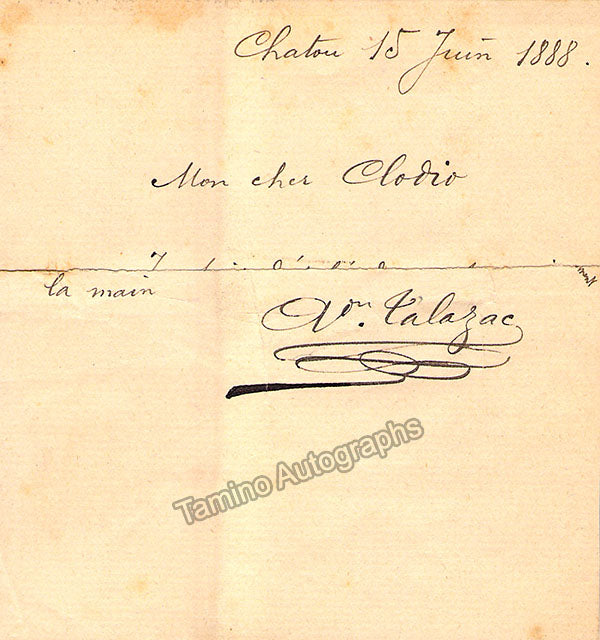 Chatou 15 Juin 1888.
Mon cher Clodio
la main
Von. Talazac
Tamino Autographs